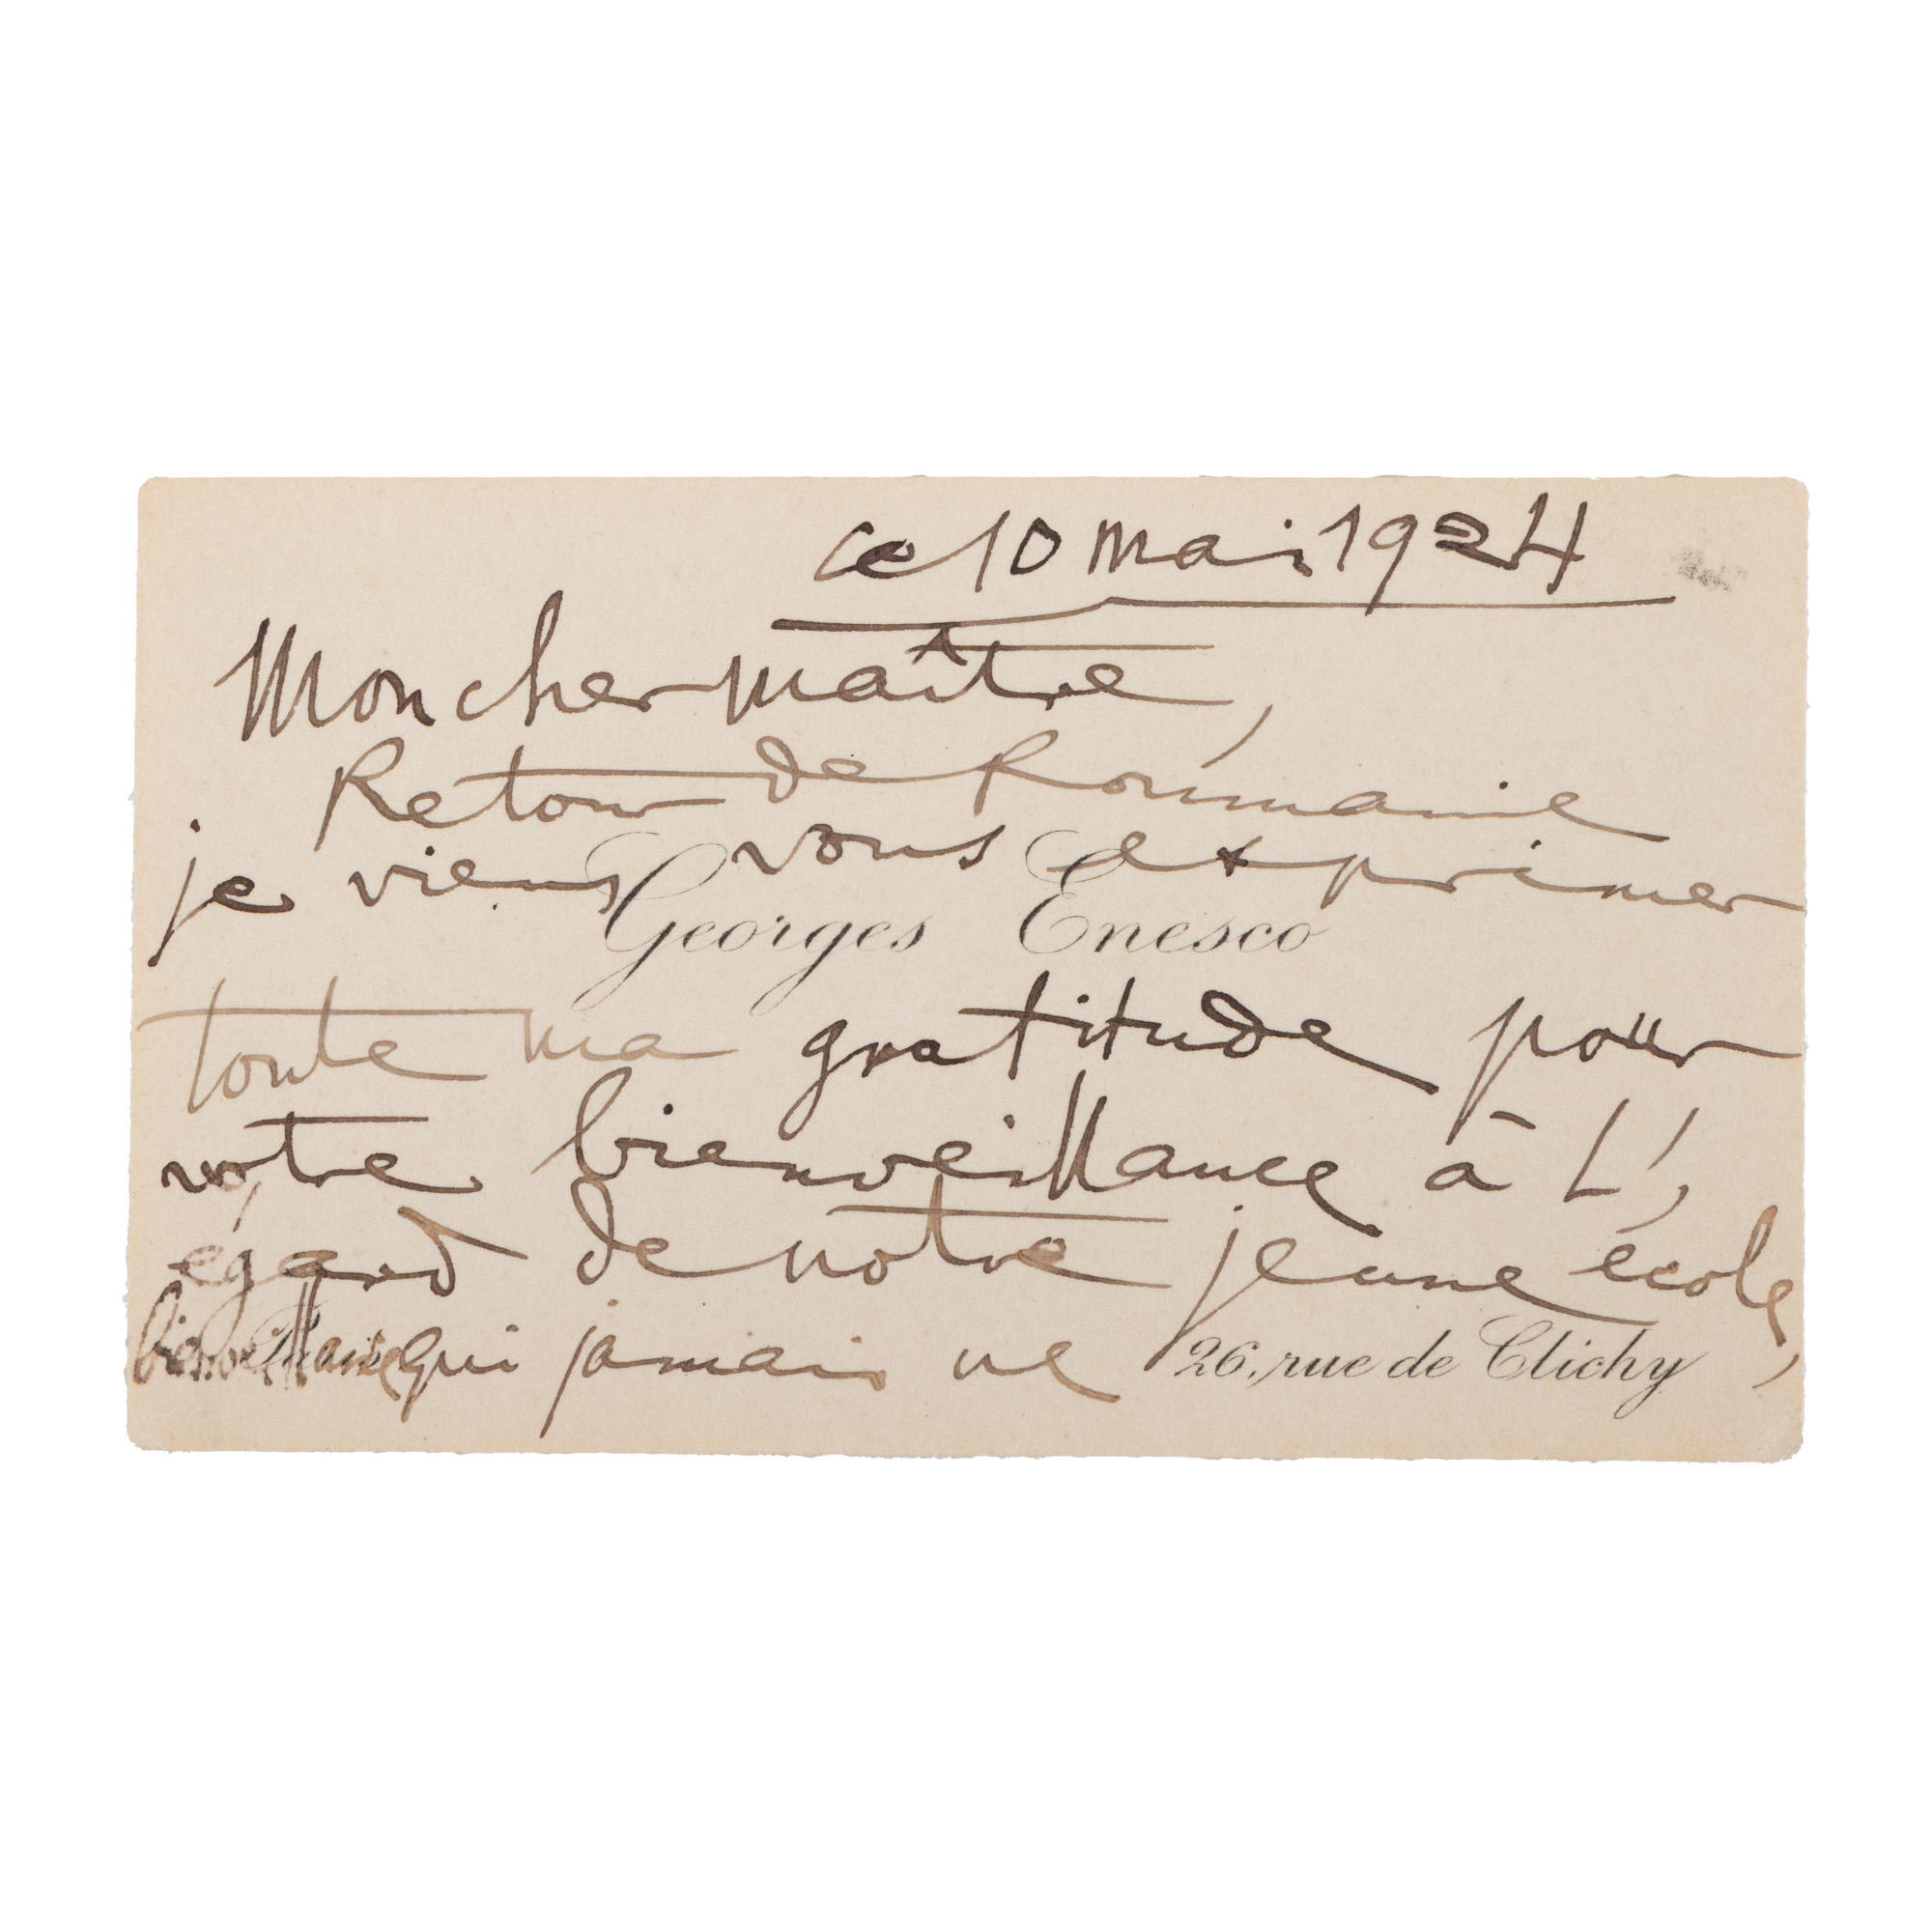 ce 10 mai 1924
Mon cher maître,
Retour de Roumanie
je viens vous exprimer
Georges Enesco
toute ma gratitude pour
votre bienveillance à l',
égard de notre jeune école,
bienveillance qui jamais ne
Paris 26, rue de Clichy